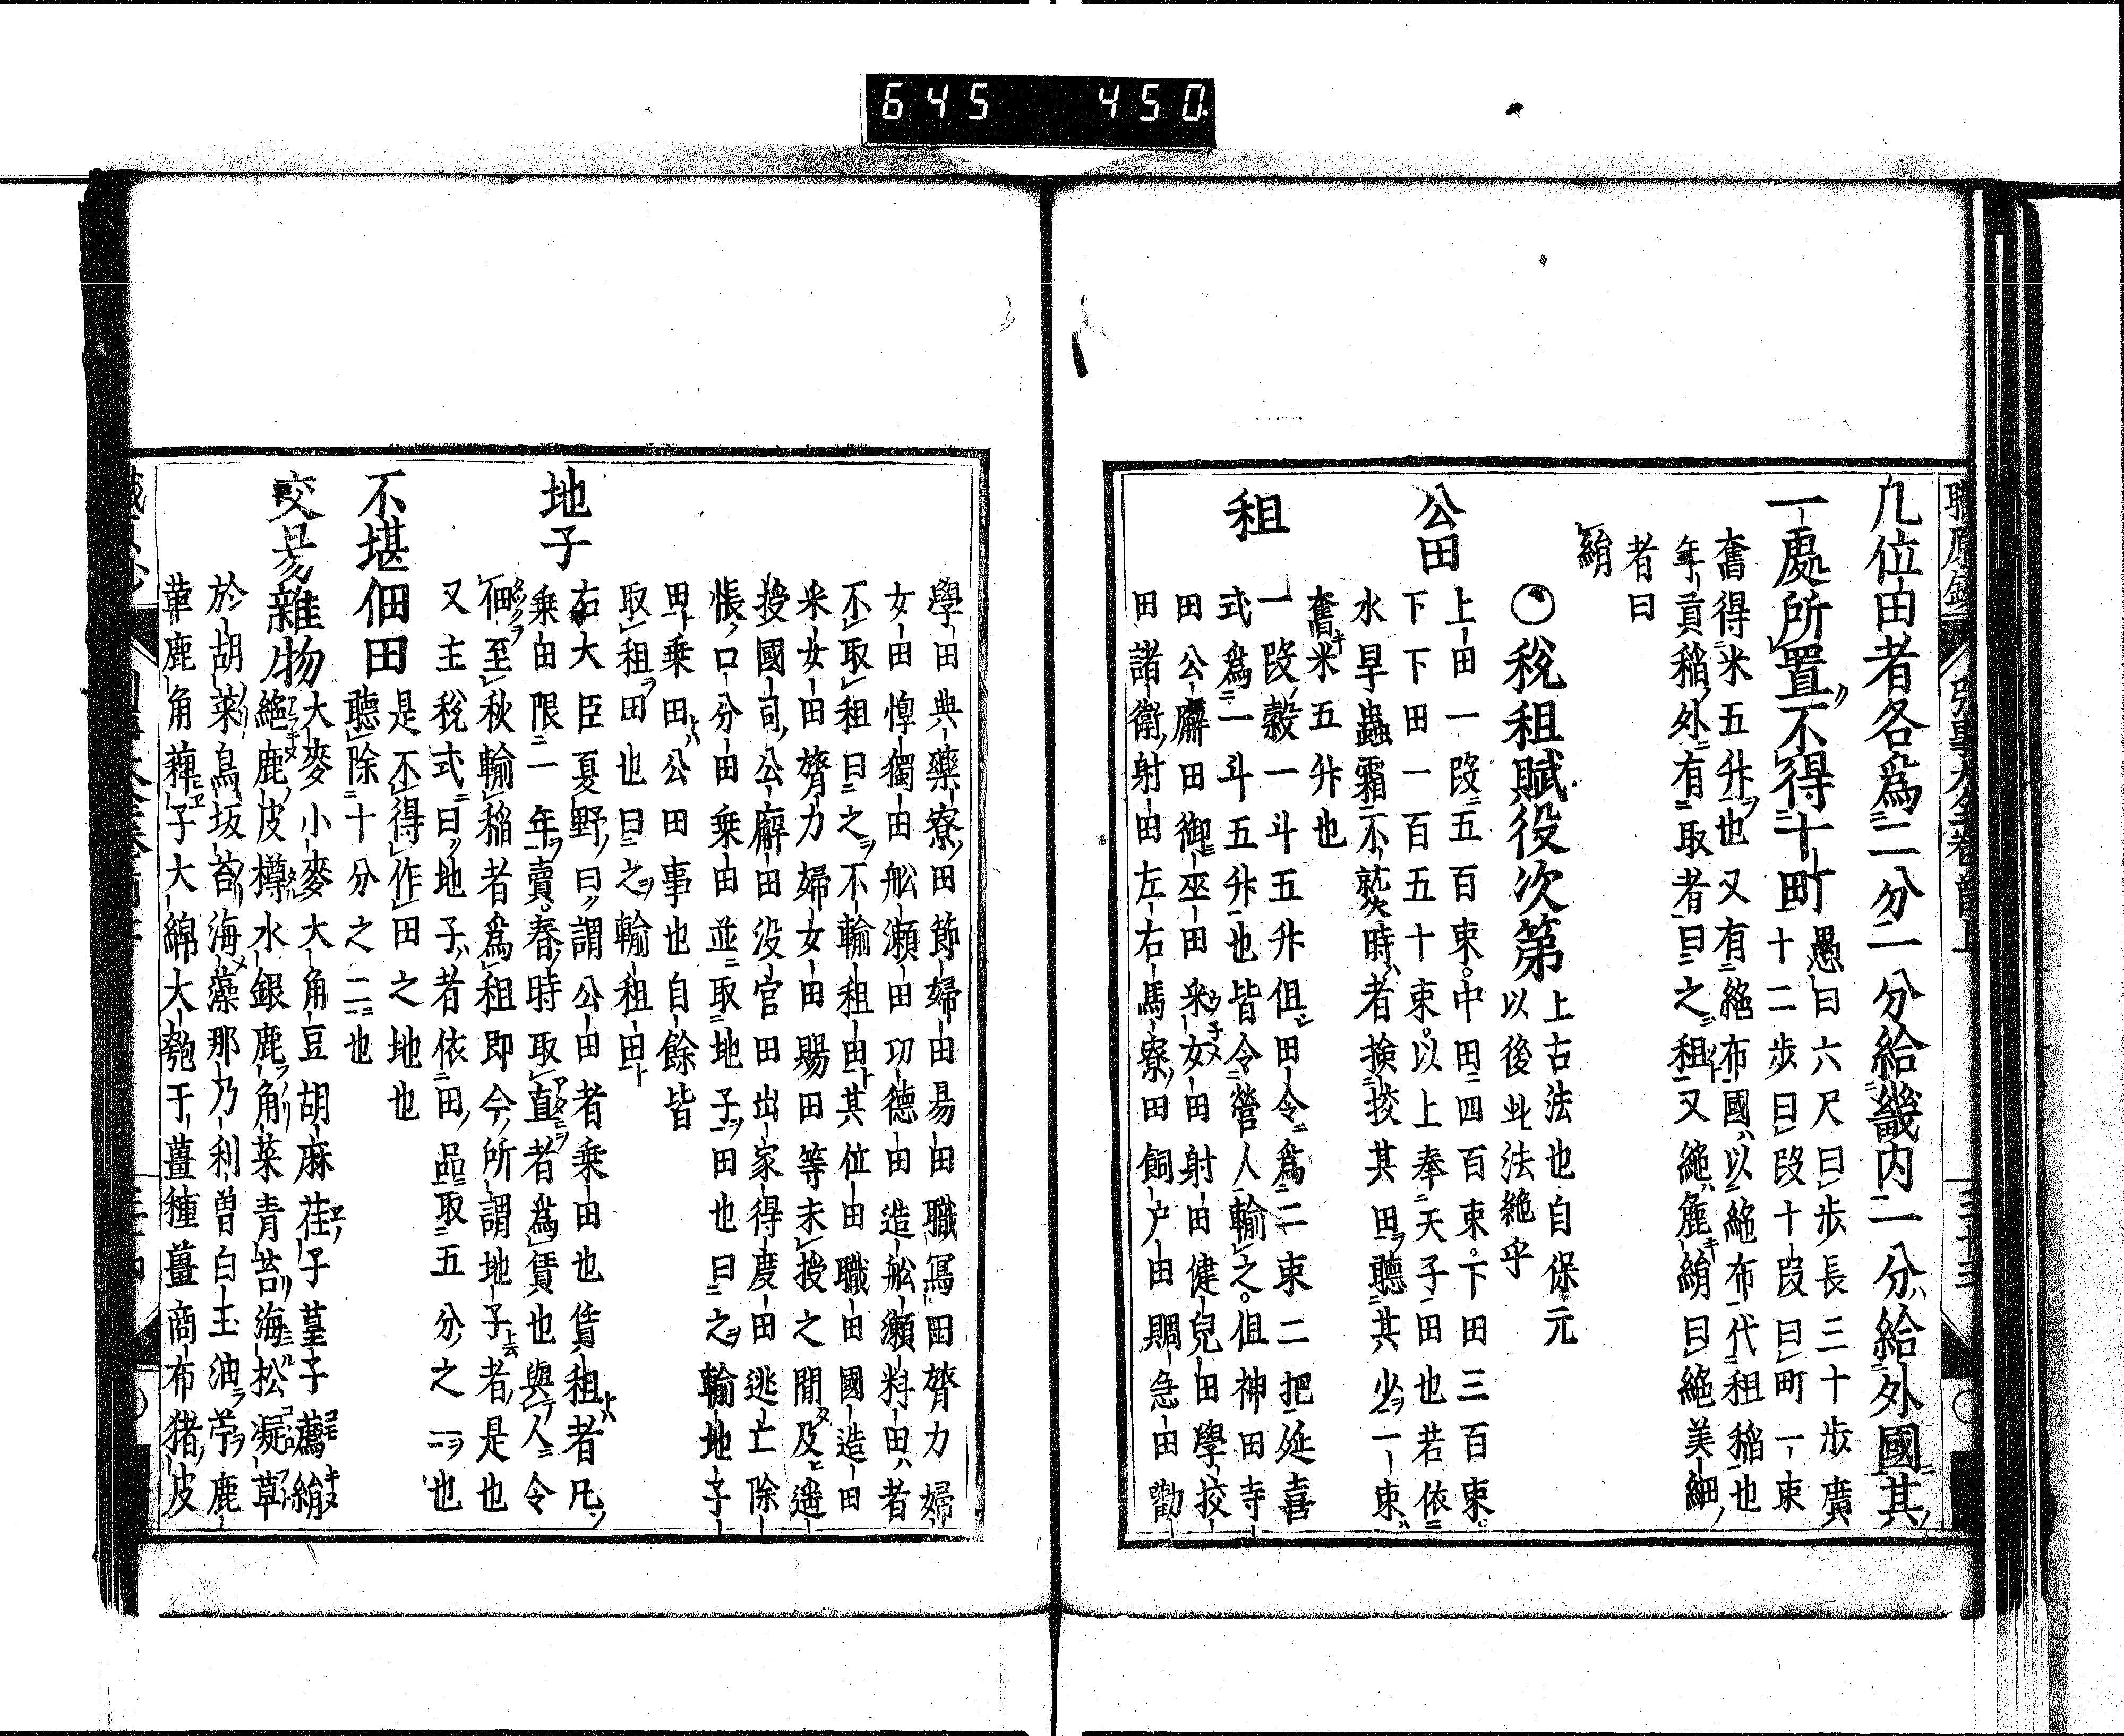 645 450
凢位田者各爲二分一分給畿内一分給外國其
一處所置不得十町
愚曰六尺曰歩長三十歩廣
十二歩曰段十段曰町一束
舂得米五升也又有絁布國以絁布代租稲也
年貢稲外有取者曰之租又絁麁絹曰絁美細
者曰
絹
〇税租賦役次第
上古法也自保元
以後此法絶乎
公田
上田一段五百束中田四百束下田三百束
下下田一百五十束以上奉天子田也若依
水旱蟲霜不熟時者撿挍其田聽其少一束
舂米五升也
租
一段穀一斗五升但田令爲二束二把延喜
式爲一斗五升也皆令營人輸之但神田寺
田公廨田御巫田采女田射田健兒田學挍
田諸衛射田左右馬寮田飼戸田賜急田勸
學田典藥寮田節婦田易田職寫田膂力婦
女田惸獨田舩瀬田功德田造舩瀬料田者
不取租曰之不輸租田其位田職田國造田
采女田膂力婦女田賜田等未授之間及遥
授國司公廨田没官田出家得度田逃亡除
帳口分田乗田並取地子田也曰之輸地子
田乗田公田事也自餘皆
取租田也曰之輸租田
地子
右大臣夏野曰謂公田者乗田也賃租者凡
乗田限一年賣春時取直者爲賃也與人令
佃至秋輸稲者爲租即今所謂地子者是也
又主税式曰地子者依田品取五分之一也
不堪佃田
是不得作田之地也
聽除十分之二也
交易雜物
大麥小麥大角豆胡麻荏子薹子薦絹
絁鹿皮樽水銀鹿角菜青苔海松凝草
於胡菜鳥坂苔海藻那乃利曽白玉油苧鹿
革鹿角稗子大綿大匏干薑種薑商布猪皮